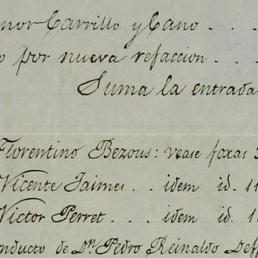 nor Carrillo y Cano . . . .
o por nueva refaccion . . .
Suma la entrada
Florentino Bezous: vease foxas 3
Vicente Jaimes . . idem id. 11
Victor Perret . . . idem id. 1
onducto de Dn. Pedro Reinaldo Deff